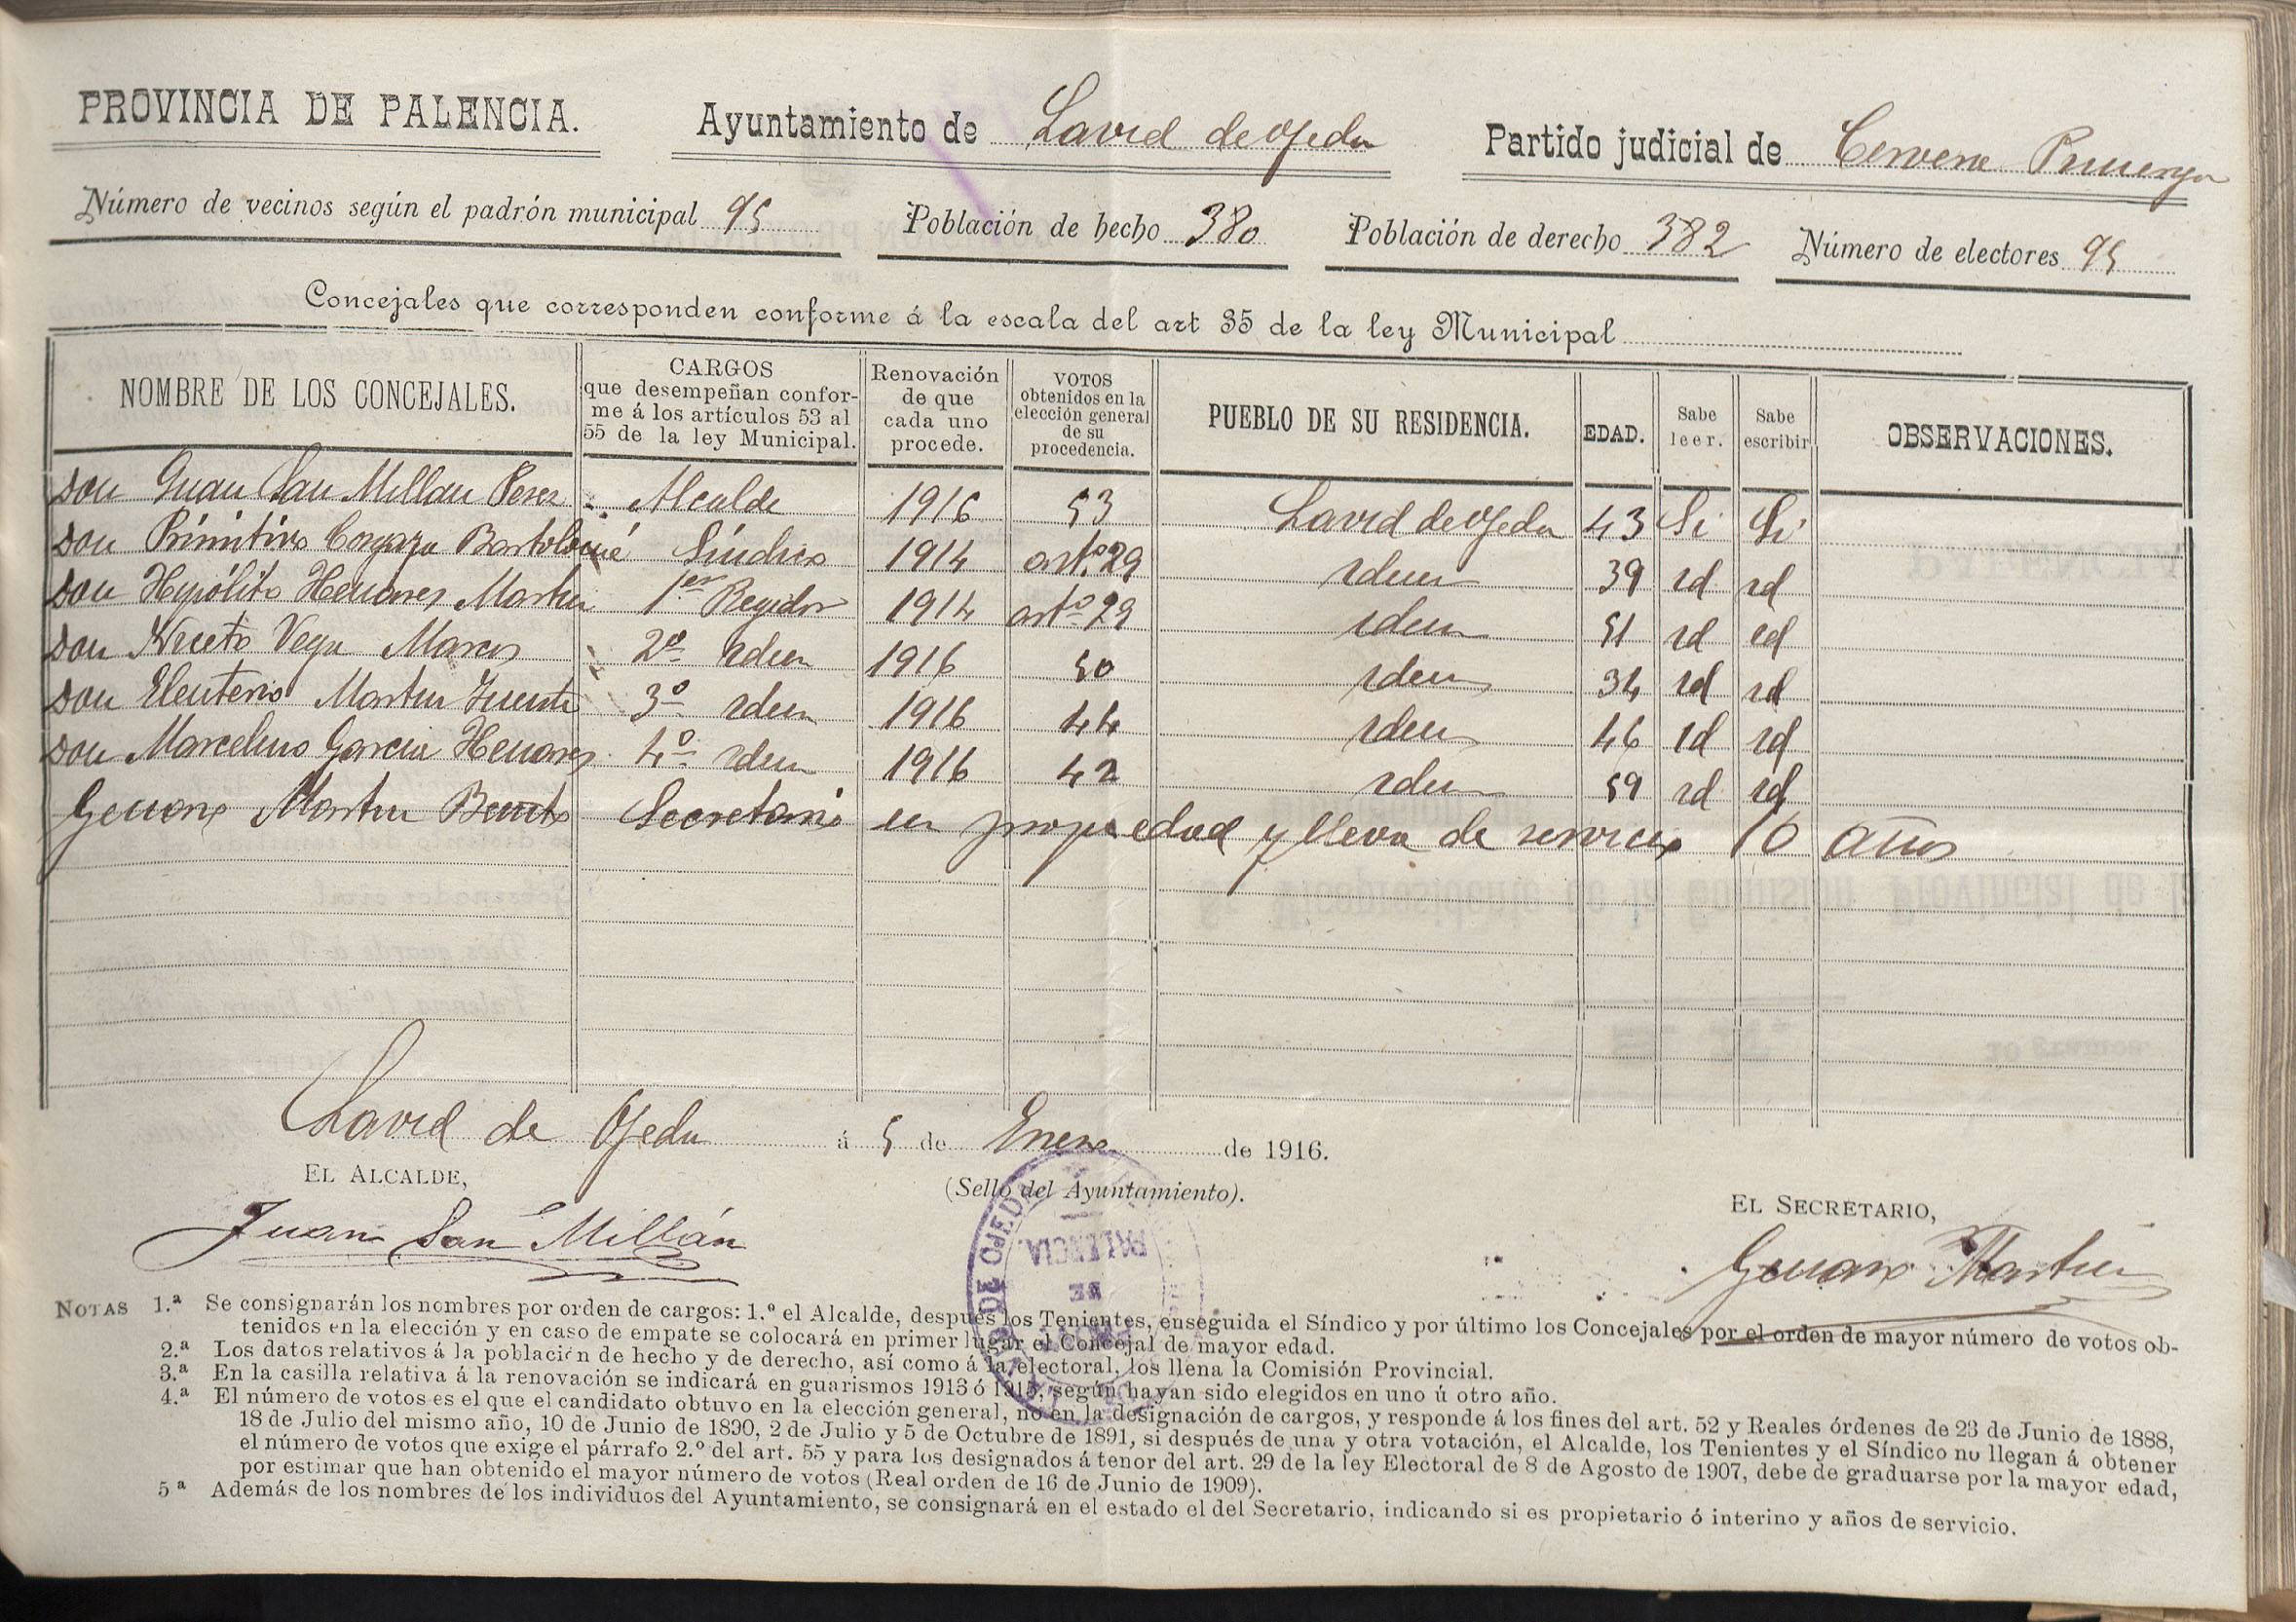 PROVINCIA DE PALENCIA. Ayuntamiento de Lavid de Ojeda Partido judicial de Cervera Pisuerga
Número de vecinos según el padrón municipal 95 Población de hecho 380 Población de derecho 382 Número de electores 95
Concejales que corresponden conforme á la escala del art 35 de la ley Municipal
NOMBRE DE LOS CONCEJALES. CARGOS que desempeñan confor- me á los artículos 53 al 55 de la ley Municipal. Renovación de que cada uno procede. VOTOS obtenidos en la elección general de su procedencia. PUEBLO DE SU RESIDENCIA. EDAD. Sabe leer. Sabe escribir OBSERVACIONES.
Don Juan San Millan Perez Alcalde 1916 53 Lavid de Ojeda 43 Si Si
Don Primitivo Bartolomé Síndico 1914 artº 29 idem 39 id id
Don Hipólito Henares Martin 1er Regidor 1914 artº 29 idem 51 id id
Don Niceto Vega Marcos 2º idem 1916 50 idem 34 id id
Don Eleuterio Martin Fuente 3º idem 1916 44 idem 46 id id
Don Marcelino Garcia Henares 4º idem 1916 42 idem 59 id id
Genaro Martin Benito Secretario en propiedad y lleva de servicio 10 años
Lavid de Ojeda á 5 de Enero de 1916.
EL ALCALDE, (Sello del Ayuntamiento). EL SECRETARIO,
Juan San Millán Genaro Martin
DE OJEDA
PALENCIA.
DE
NOTAS 1.ª Se consignarán los nombres por orden de cargos: 1.º el Alcalde, después los Tenientes, enseguida el Síndico y por último los Concejales por el orden de mayor número de votos ob-
tenidos en la elección y en caso de empate se colocará en primer lugar el Concejal de mayor edad.
2.ª Los datos relativos á la población de hecho y de derecho, así como á la electoral, los llena la Comisión Provincial.
3.ª En la casilla relativa á la renovación se indicará en guarismos 1913 ó 1915, según hayan sido elegidos en uno ú otro año.
4.ª El número de votos es el que el candidato obtuvo en la elección general, no en la designación de cargos, y responde á los fines del art. 52 y Reales órdenes de 23 de Junio de 1888,
18 de Julio del mismo año, 10 de Junio de 1890, 2 de Julio y 5 de Octubre de 1891, si después de una y otra votación, el Alcalde, los Tenientes y el Síndico no llegan á obtener
el número de votos que exige el párrafo 2.º del art. 55 y para los designados á tenor del art. 29 de la ley Electoral de 8 de Agosto de 1907, debe de graduarse por la mayor edad,
por estimar que han obtenido el mayor número de votos (Real orden de 16 de Junio de 1909).
5ª Además de los nombres de los individuos del Ayuntamiento, se consignará en el estado el del Secretario, indicando si es propietario ó interino y años de servicio.